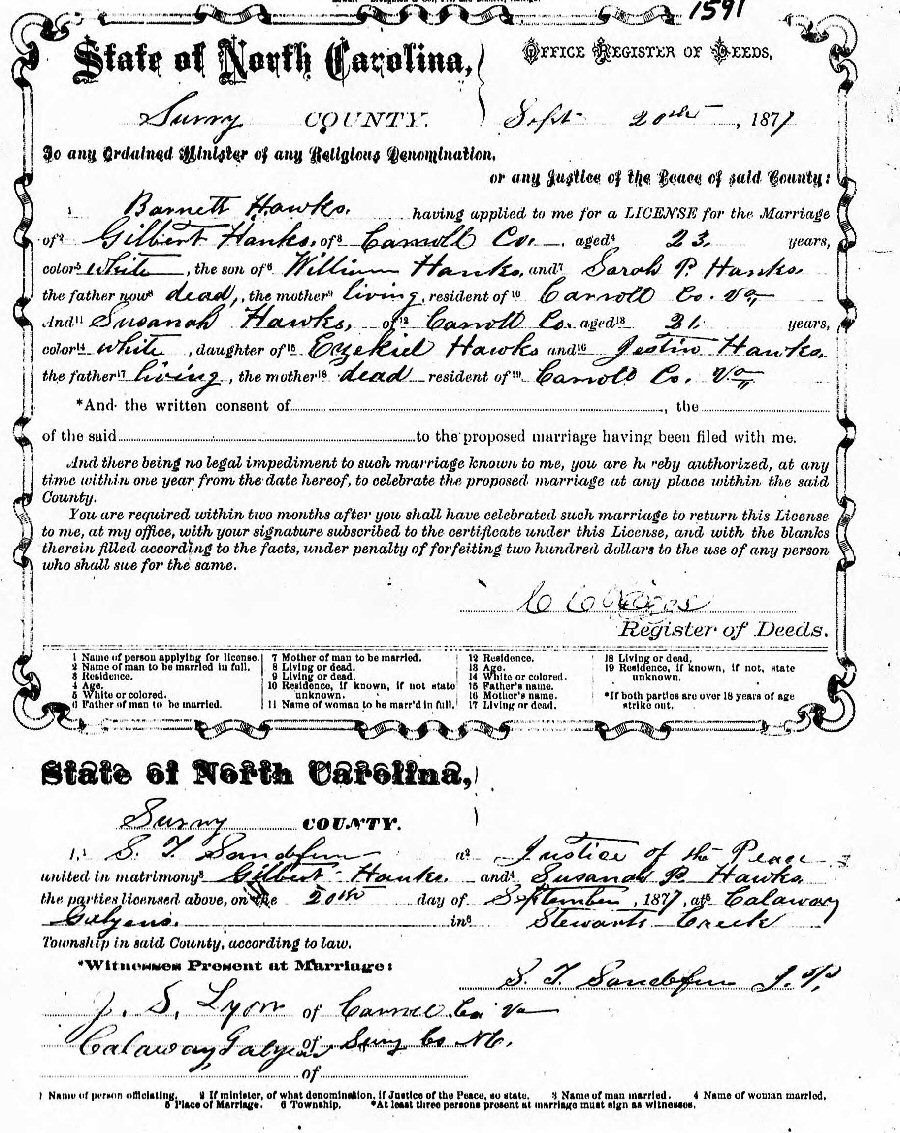 1591
State of North Carolina, OFFICE REGISTER OF DEEDS,
Surry COUNTY. Sept 20th, 1877
To any Ordained Minister of any Religious Denomination,
or any Justice of the Peace of said County:
1 Barnett Hawks. having applied to me for a LICENSE for the Marriage
of2 Gilbert Hanks. of3 Carroll Co. aged4 23 years,
color5 white, the son of6 William Hanks. and7 Sarah P. Hanks.
the father now8 dead, the mother9 living, resident of10 Carroll Co. Va
And11 Susanah Hawks, of12 Carroll Co. aged13 21 years,
color14 white, daughter of15 Ezekiel Hawks and16 Jestin Hawks.
the father17 living, the mother18 dead resident of19 Carroll Co. Va
*And the written consent of , the
of the said to the proposed marriage having been filed with me.
And there being no legal impediment to such marriage known to me, you are hereby authorized, at any
time within one year from the date hereof, to celebrate the proposed marriage at any place within the said
County.
You are required within two months after you shall have celebrated such marriage to return this License
to me, at my office, with your signature subscribed to the certificate under this License, and with the blanks
therein filled according to the facts, under penalty of forfeiting two hundred dollars to the use of any person
who shall sue for the same.
C C
Register of Deeds.
1 Name of person applying for license. 7 Mother of man to be married. 12 Residence. 18 Living or dead.
2 Name of man to be married in full. 8 Living or dead. 13 Age. 19 Residence, if known, if not, state
3 Residence. 9 Living or dead. 14 White or colored. unknown.
4 Age. 10 Residence, if known, if not state 15 Father's name.
5 White or colored. unknown. 16 Mother's name. *If both parties are over 18 years of age
6 Father of man to be married. 11 Name of woman to be marr'd in full. 17 Living or dead. strike out.
State of North Carolina,
Surry COUNTY.
I,1 S. T. Sandefur a2 Justice of the Peace
united in matrimony3 Gilbert Hanks. and4 Susanah P. Hawks
the parties licensed above, on the 20th day of September, 1877, at5 Calaway
Galyens. in6 Stewarts Creek
Township in said County, according to law.
*Witnesses Present at Marriage:
S. T. Sandefur J. P.
J. S. Lyon of Carroll Co Va
Calaway Galyean of Surry Co NC.
of
1 Name of person officiating. 2 If minister, of what denomination, if Justice of the Peace, so state. 3 Name of man married. 4 Name of woman married.
5 Place of Marriage. 6 Township. *At least three persons present at marriage must sign as witnesses.